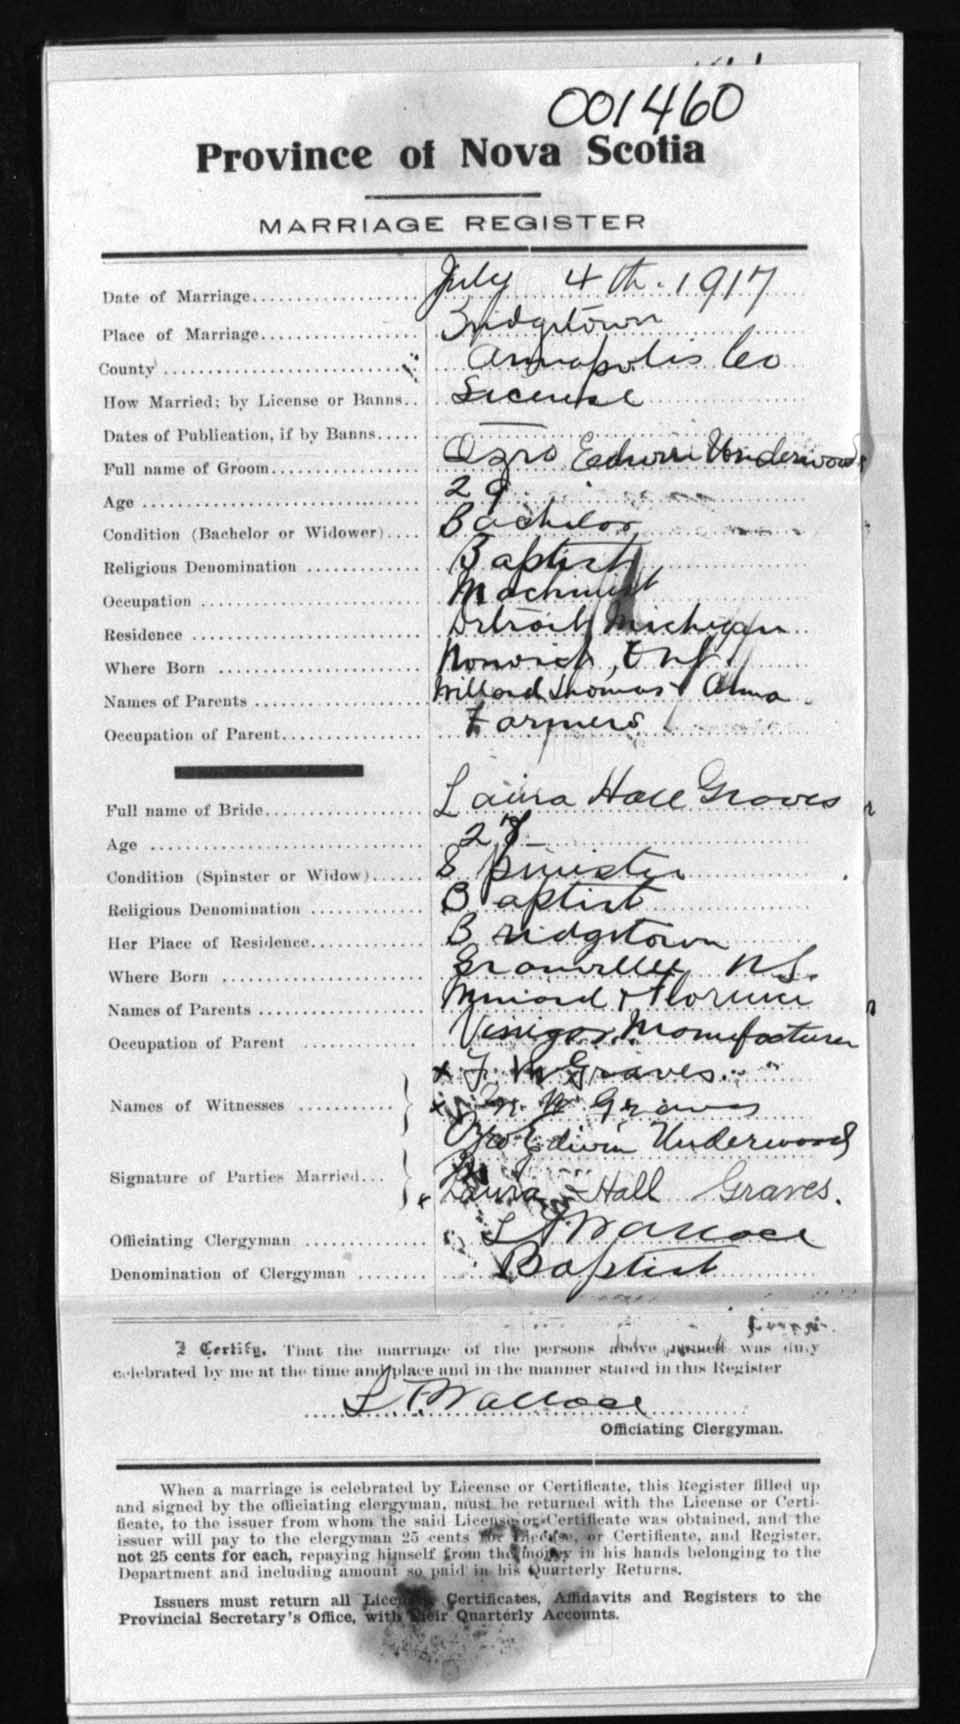 001460
Province of Nova Scotia
MARRIAGE REGISTER
Date of Marriage July 4th. 1917
Place of Marriage Bridgetown
County Annapolis Co
How Married; by License or Banns License
Dates of Publication, if by Banns —
Full name of Groom Ozro Edwin Underwood
Age 29
Condition (Bachelor or Widower) Bachelor
Religious Denomination Baptist
Occupation Machinist
Residence Detroit, Michigan
Where Born Norwich, Ont.
Names of Parents Willard Thomas + Anna
Occupation of Parent Farmers
Full name of Bride Laura Hall Graves
Age 27
Condition (Spinster or Widow) Spinster
Religious Denomination Baptist
Her Place of Residence Bridgetown
Where Born Granville N.S.
Names of Parents Miniard + Florence
Occupation of Parent Vinegar Manufacturer
Names of Witnesses x F. M Graves
x W Graves
Ozro Edwin Underwood
Signature of Parties Married x Laura Hall Graves.
Officiating Clergyman L F Wallace
Denomination of Clergyman Baptist
I Certify, That the marriage of the persons above named was duly
celebrated by me at the time and place and in the manner stated in this Register
L. F. Wallace
Officiating Clergyman.
When a marriage is celebrated by License or Certificate, this Register filled up
and signed by the officiating clergyman, must be returned with the License or Certi-
ficate, to the issuer from whom the said License or Certificate was obtained, and the
issuer will pay to the clergyman 25 cents for License, or Certificate, and Register,
not 25 cents for each, repaying himself from the money in his hands belonging to the
Department and including amount so paid in his Quarterly Returns.
Issuers must return all Licenses, Certificates, Affidavits and Registers to the
Provincial Secretary's Office, with their Quarterly Accounts.